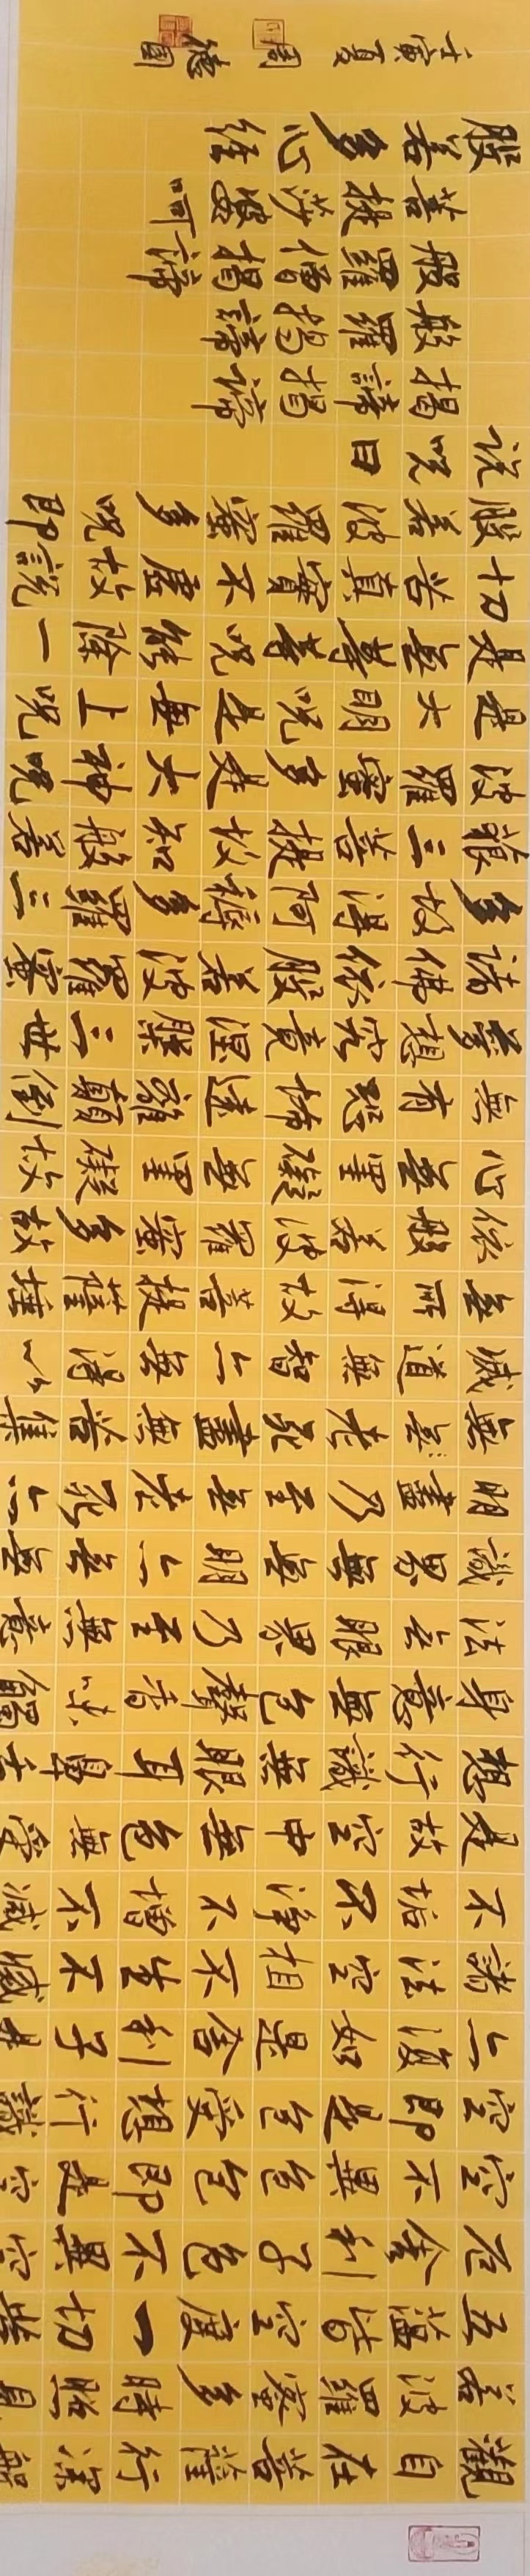 觀自在菩薩行深般
若波羅蜜多時照見
五蘊皆空度一切苦
厄舍利子色不異空
空不異色色即是空
空即是色受想行識
亦復如是舍利子是
諸法空相不生不滅
不垢不淨不增不減
是故空中無色無受
想行識無眼耳鼻舌
身意無色聲香味觸
法無眼界乃至無意
識界無無明亦無無
明盡乃至無老死亦
無無老死盡無苦集
滅道無智亦無得以
無所得故菩提薩埵
依般若波羅蜜多故
心無罣礙無罣礙故
無有恐怖遠離顛倒
夢想究竟涅槃三世
諸佛依般若波羅蜜
多故得阿耨多羅三
藐三菩提故知般若
波羅蜜多是大神咒
是大明咒是無上咒
是無等等咒能除一
切苦真實不虛故說
般若波羅蜜多咒即
说咒曰
揭諦揭諦
般羅揭諦
般羅僧揭諦
菩提莎婆呵
般若多心经
壬寅夏周德國